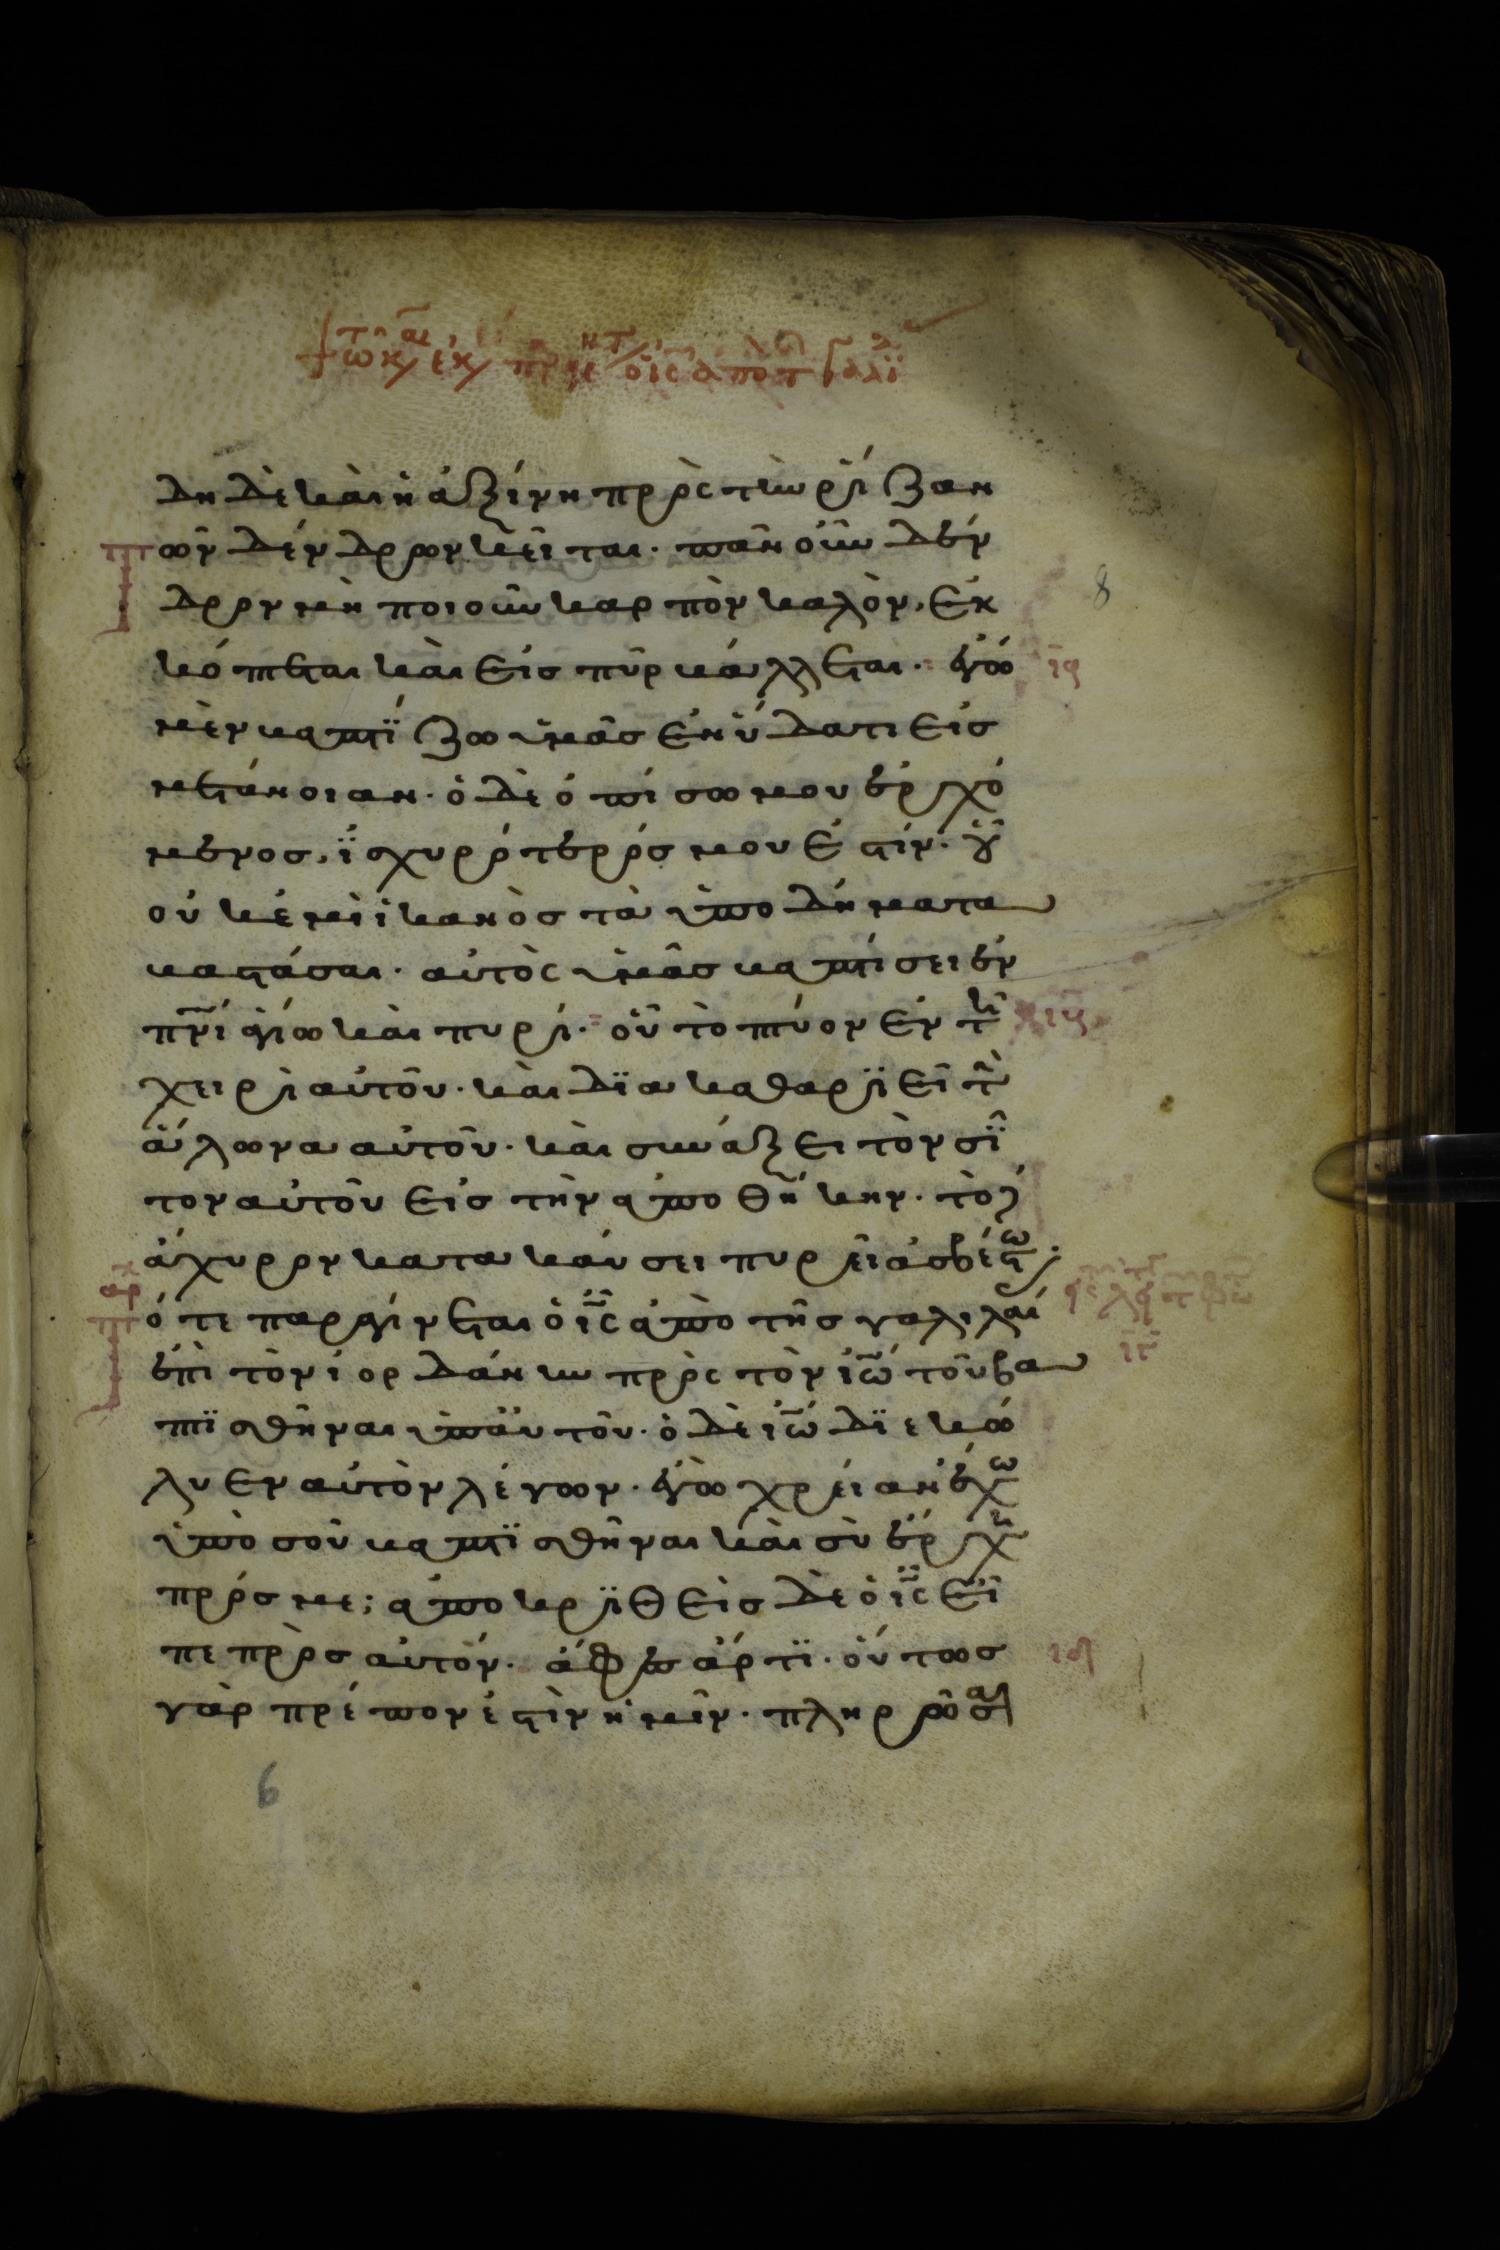 δη δὲ καὶ ἡ ἀξίνη πρὸς τὴν ρίζαν
τῶν δένδρων κεῖται· πᾶν οὖν δέν
δρον μὴ ποιοῦν καρπὸν καλὸν, ἐκ
κόπτεται καὶ εἰς πῦρ βάλλεται· ἐγὼ
ιϛ
μὲν βαπτίζω ὑμᾶς ἐν ὕδατι εἰς
μετάνοιαν· ὁ δὲ ὀπίσω μου ἐρχό
μενος, ἰσχυρότερός μου ἐστίν· οὗ
οὐκ εἰμὶ ἱκανὸς τὰ ὑποδήματα
βαστάσαι· αὐτὸς ὑμᾶς βαπτίσει ἐν
πνι ἁγίω καὶ πυρί· οὗ τὸ πτύον ἐν τῆ
χειρὶ αὐτοῦ· καὶ διακαθαριεῖ τὴν
ἅλωνα αὐτοῦ· καὶ συνάξει τὸν σῖ
τον αὐτοῦ εἰς τὴν ἀποθήκην· τὸ δὲ
ἄχυρον κατακαύσει πυρὶ ἀσβέστω·
τότε παραγίνεται ὁ ις ἀπὸ τῆς γαλιλαί
ἐπὶ τὸν ἰορδάνην πρὸς τὸν ιω τοῦ βα
πτισθῆναι ὑπ' αὐτοῦ· ὁ δὲ ιω διεκώ
λυεν αὐτὸν λέγων· ἐγὼ χρείαν ἔχω
ὑπὸ σοῦ βαπτισθῆναι καὶ σὺ ἔρχη
πρός με; ἀποκριθεὶς δὲ ὁ ις εἶ
πε πρὸς αὐτόν· ἄφες ἄρτι· οὕτως
γὰρ πρέπον ἐστὶν ἡμῖν· πληρῶσαι
6